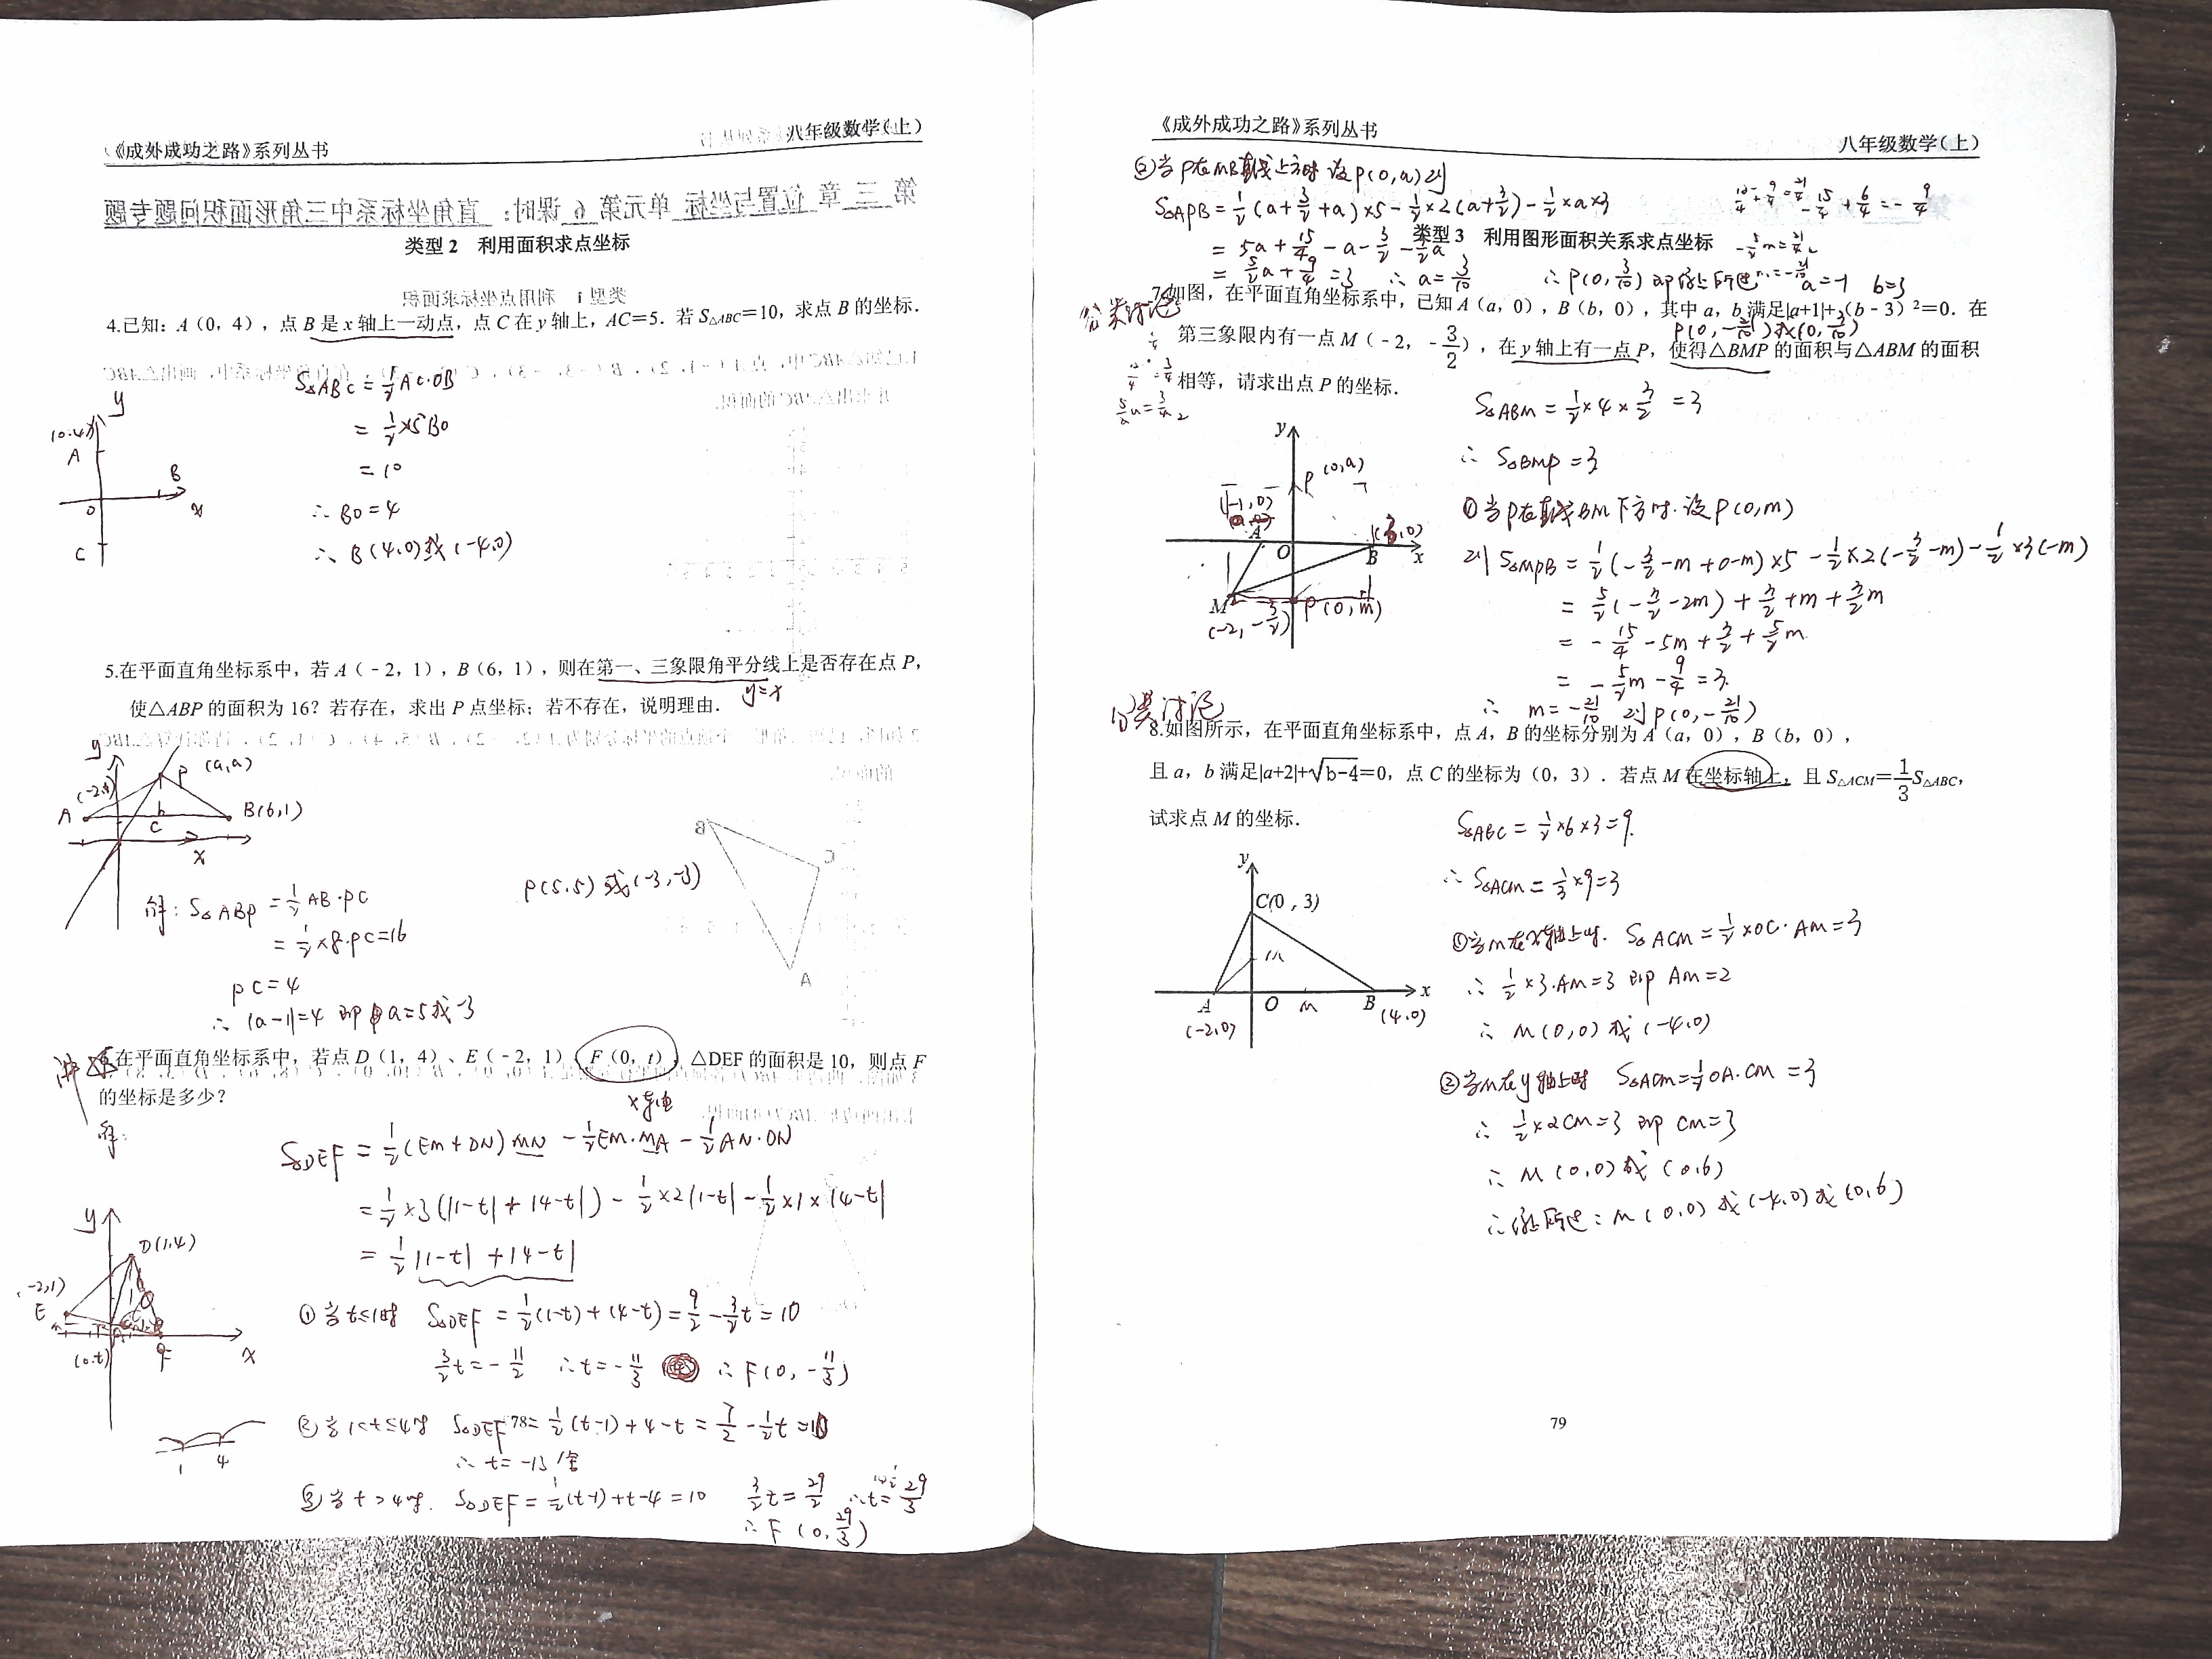 《成外成功之路》系列丛书
八年级数学(上)
类型 2 利用面积求点坐标
4.已知：A（0，4），点 B 是 x 轴上一动点，点 C 在 y 轴上，AC＝5．若 S△ABC＝10，求点 B 的坐标．
S△ABC = 1/2 AC·OB
= 1/2 ×5 BO
= 10
∴ BO = 4
∴ B (4,0) 或 (-4,0)
y
(0,4)
A
B
O
x
C
5.在平面直角坐标系中，若 A（﹣2，1），B（6，1），则在第一、三象限角平分线上是否存在点 P，
y=x
使△ABP 的面积为 16？若存在，求出 P 点坐标；若不存在，说明理由．
y
P (a,a)
A
B(6,1)
C
x
P(5,5) 或 (-3,-3)
解: S△ABP = 1/2 AB·PC
= 1/2 ×8·PC=16
PC=4
∴ |a-1|=4 即 a=5或-3
6.在平面直角坐标系中，若点 D（1，4）、E（﹣2，1）、F（0，t），△DEF 的面积是 10，则点 F
的坐标是多少？
解:
S△DEF = 1/2 (EM+DN) MN - 1/2 EM·MA - 1/2 AN·DN
= 1/2 ×3 (|1-t| + |4-t|) - 1/2 ×2|1-t| - 1/2 ×1×|4-t|
= 1/2 |1-t| + |4-t|
y
D(1,4)
(-2,1)
E
(0,t)
F
x
① 当 t≤1时 S△DEF = 1/2 (1-t) + (4-t) = 9/2 - 3/2 t = 10
3/2 t = - 11/2 ∴ t = - 11/3 ∴ F(0, - 11/3)
② 当 1<t≤4时 S△DEF = 1/2 (t-1) + 4-t = 7/2 - 1/2 t = 10
∴ t = -13 舍
1 4
③ 当 t>4时. S△DEF = 1/2 (t-1) + t-4 = 10 3/2 t = 29/2 ∴ t = 29/3
∴ F (0, 29/3)
78
《成外成功之路》系列丛书
八年级数学(上)
② 当P在MB直线上方时 设P(0,a) 则
S△MPB = 1/2 (a+ 3/2 +a) ×5 - 1/2 ×2(a+ 3/2) - 1/2 ×a×3
= 5a + 15/4 - a - 3/2 - 3/2 a
类型 3 利用图形面积关系求点坐标
= 5/2 a + 9/4 = 3 ∴ a = 3/10 ∴ P(0, 3/10) 即综上所述
a=-1 b=3
分类讨论
7.如图，在平面直角坐标系中，已知 A（a，0），B（b，0），其中 a，b 满足|a+1|+（b﹣3）²＝0．在
P(0, - 21/10) 或 (0, 3/10)
第三象限内有一点 M（﹣2，﹣3/2），在 y 轴上有一点 P，使得△BMP 的面积与△ABM 的面积
相等，请求出点 P 的坐标．
S△ABM = 1/2 ×4× 3/2 = 3
∴ S△BMP = 3
① 当P在直线BM下方时. 设P(0,m)
则 S△MPB = 1/2 (- 3/2 -m +0-m) ×5 - 1/2 ×2(- 3/2 -m) - 1/2 ×3(-m)
= 5/2 (- 3/2 -2m) + 3/2 +m + 3/2 m
= - 15/4 -5m + 3/2 + 5/2 m
= - 5/2 m - 9/4 = 3
∴ m = - 21/10 则P(0, - 21/10)
y
P (0,a)
(-1,0)
A
O
B
(3,0)
x
M
(-2, - 3/2)
P(0,m)
分类讨论
8.如图所示，在平面直角坐标系中，点 A，B 的坐标分别为 A（a，0），B（b，0），
且 a，b 满足|a+2|+√b-4＝0，点 C 的坐标为（0，3）．若点 M 在坐标轴上，且 S△ACM＝1/3 S△ABC，
试求点 M 的坐标．
S△ABC = 1/2 ×6×3=9
∴ S△ACM = 1/3 ×9=3
① 当M在x轴上时. S△ACM = 1/2 ×OC·AM=3
∴ 1/2 ×3·AM=3 即 AM=2
∴ M(0,0) 或 (-4,0)
② 当M在y轴上时 S△ACM = 1/2 OA·CM = 3
∴ 1/2 ×2CM=3 即 CM=3
∴ M(0,0) 或 (0,6)
∴ 综上所述: M(0,0) 或 (-4,0) 或 (0,6)
y
C(0，3)
M
A
O
M
B
x
(-2,0)
(4,0)
79